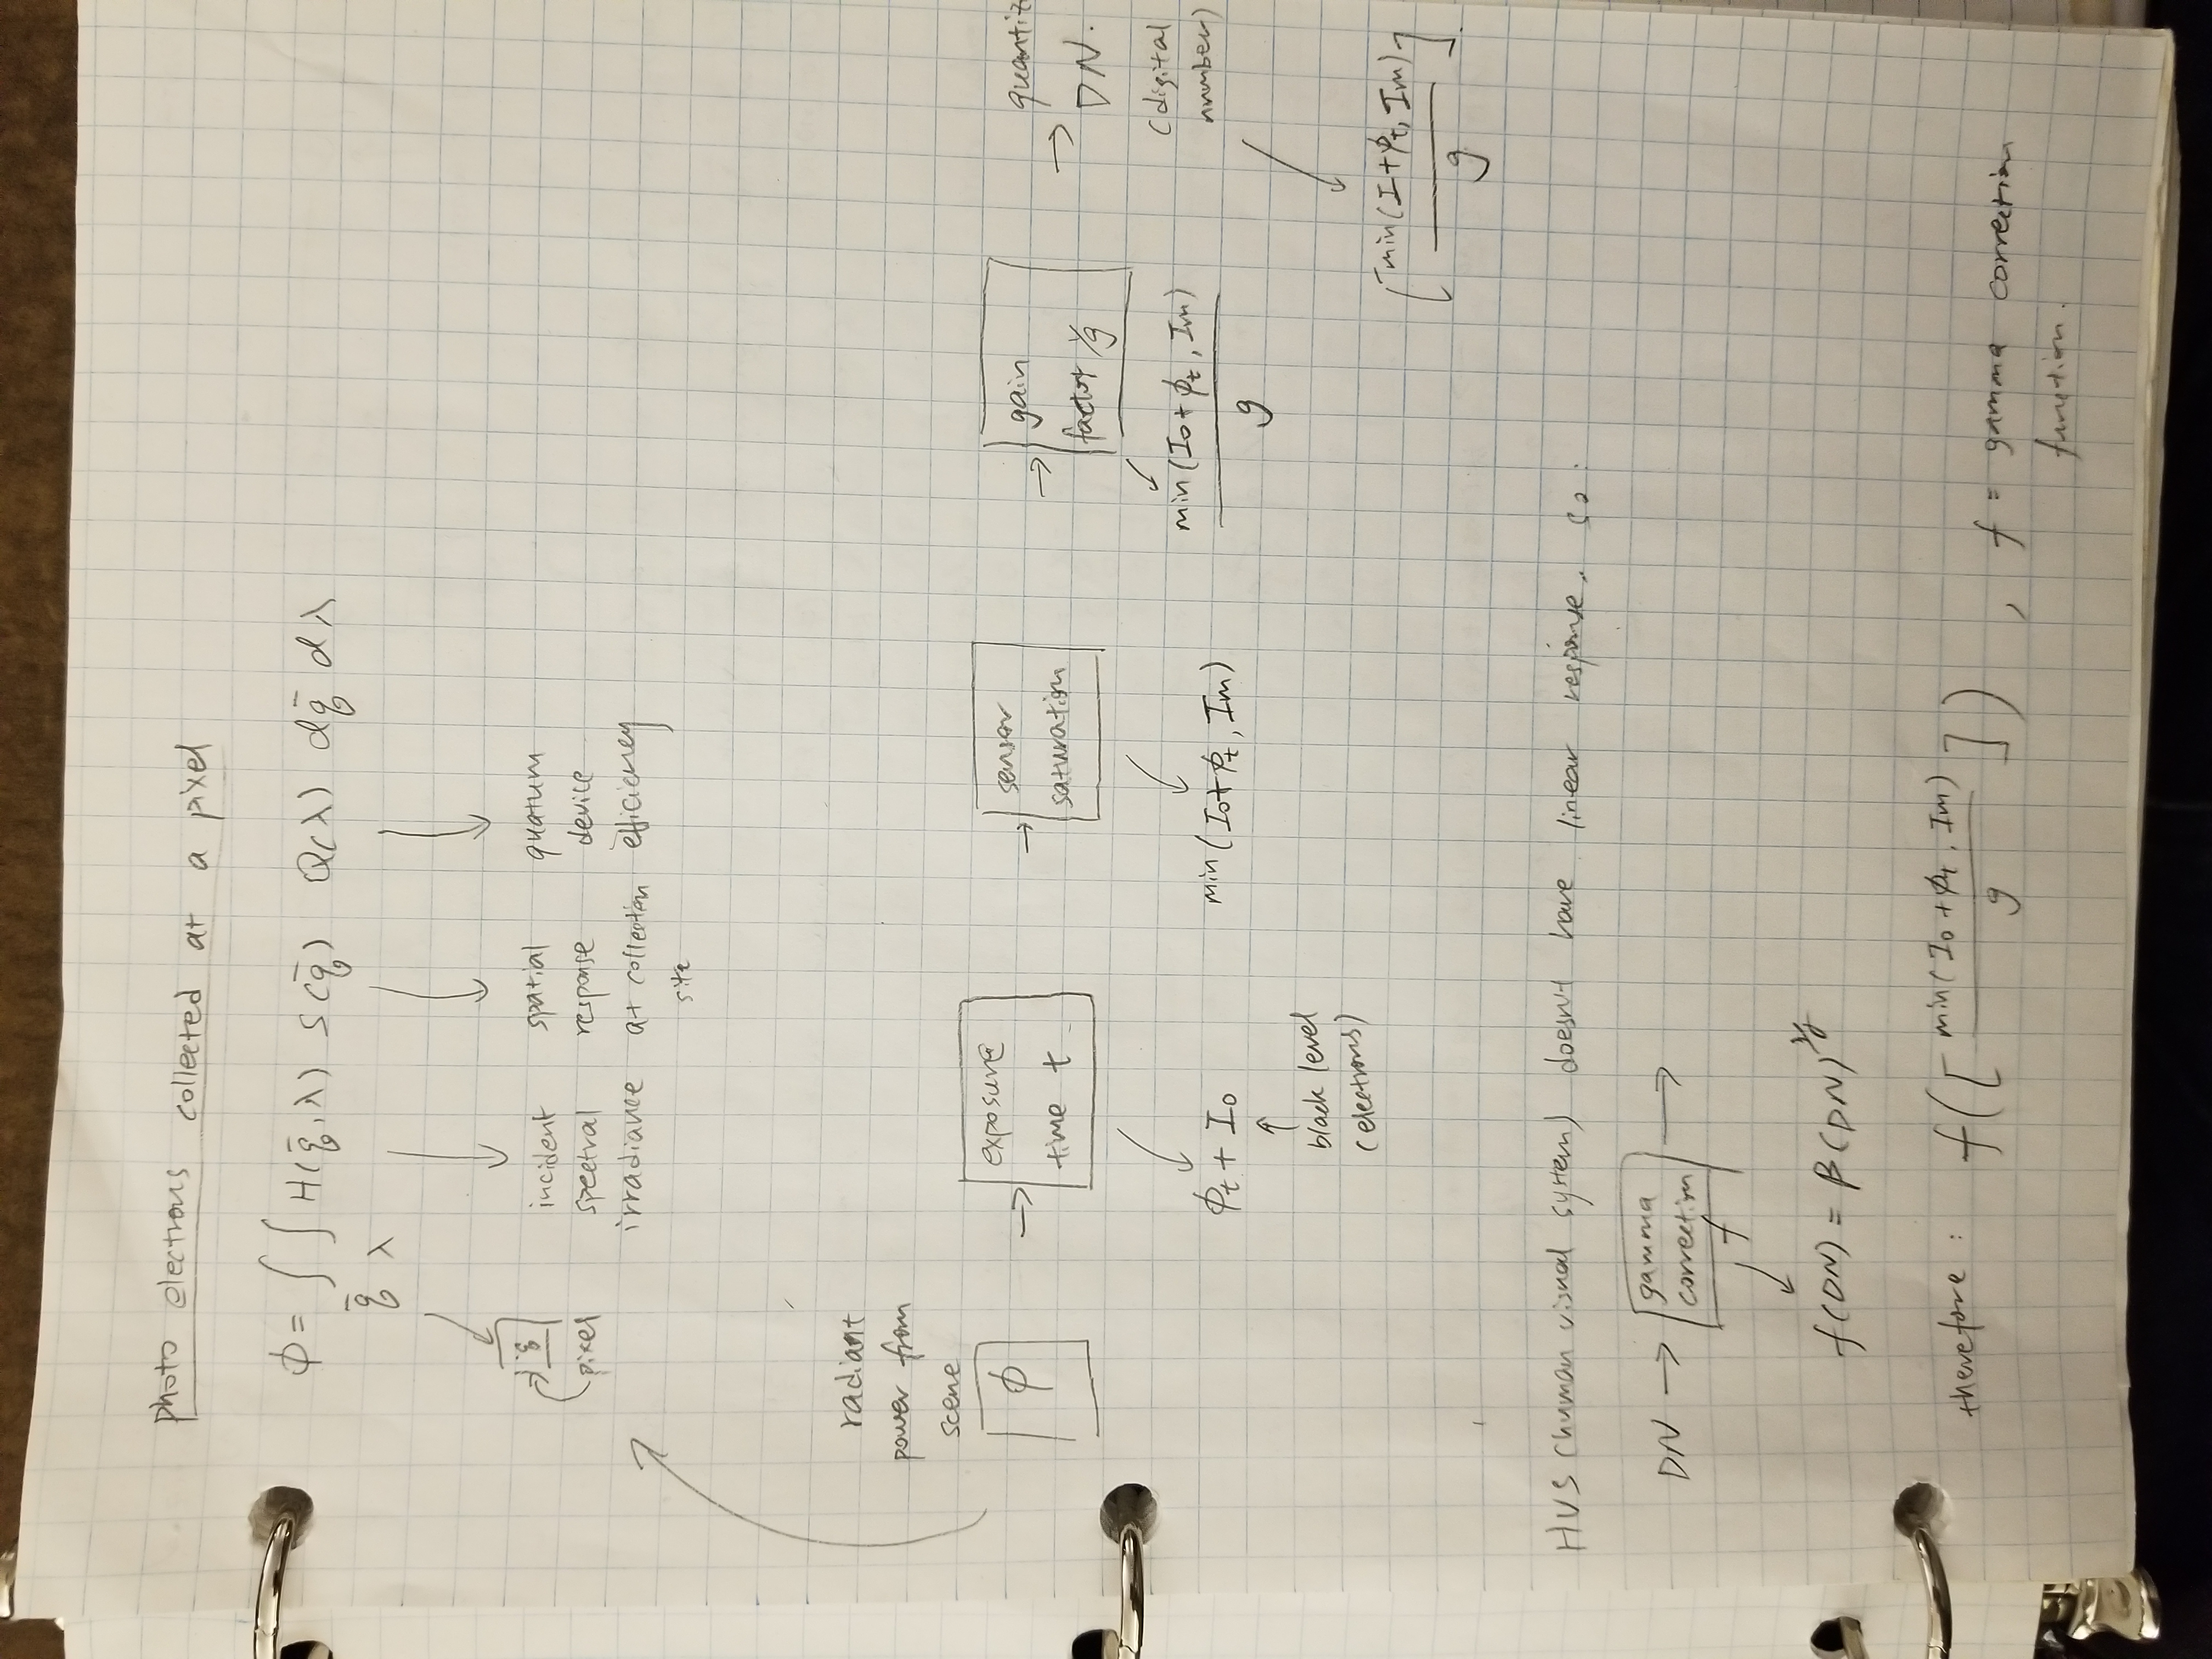 photo electrons collected at a pixel
ϕ = ∫ ∫ H(q̄, λ) S(q̄) Q(λ) dq̄ dλ
q̄ λ
q̄
pixel
incident
spectral
irradiance
spatial
response
at collection
site
quatum
device
efficiency
radiant
power from
scene
ϕ
→ exposure
time t
→ sensor
saturation
→ gain
factor 1/g
→ quantiz
DN.
(digital
number)
ϕt + I0
↑
black level
(electrons)
min(I0+ϕt, Im)
min(I0+ϕt, Im)
g
[min(I+ϕt, Im)]
g
HVS (human visual system) doesn't have linear response. so:
DN → gamma →
correction
f
f(DN) = β(DN)
therefore: f([min(I0+ϕt, Im) / g]), f = gamma correction
function.